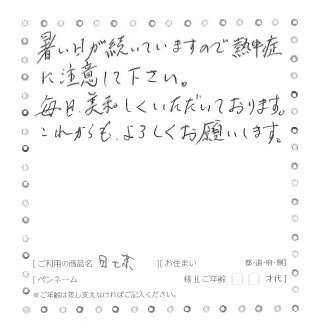 暑い日が続いていますので熱中症
に注意して下さい。
毎日、美味しくいただいております。
これからも、よろしくお願いします。
[ご利用の商品名 日七茶 ][お住まい 都・道・府・県]
[ペンネーム 様][ご年齢 才代]
※ご年齢は差し支えなければご記入ください。